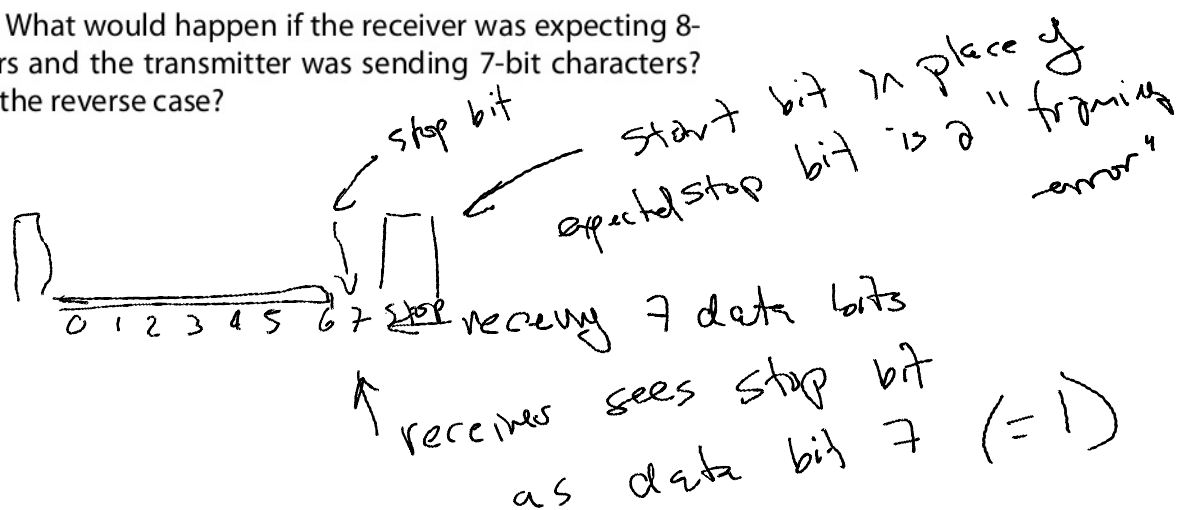 What would happen if the receiver was expecting 8-
rs and the transmitter was sending 7-bit characters?
the reverse case?
stop bit
start bit in place of
expected stop bit is a "framing
error"
0 1 2 3 4 5 6 7 stop
7 data bits
receiver sees stop bit
as data bit 7 (=1)